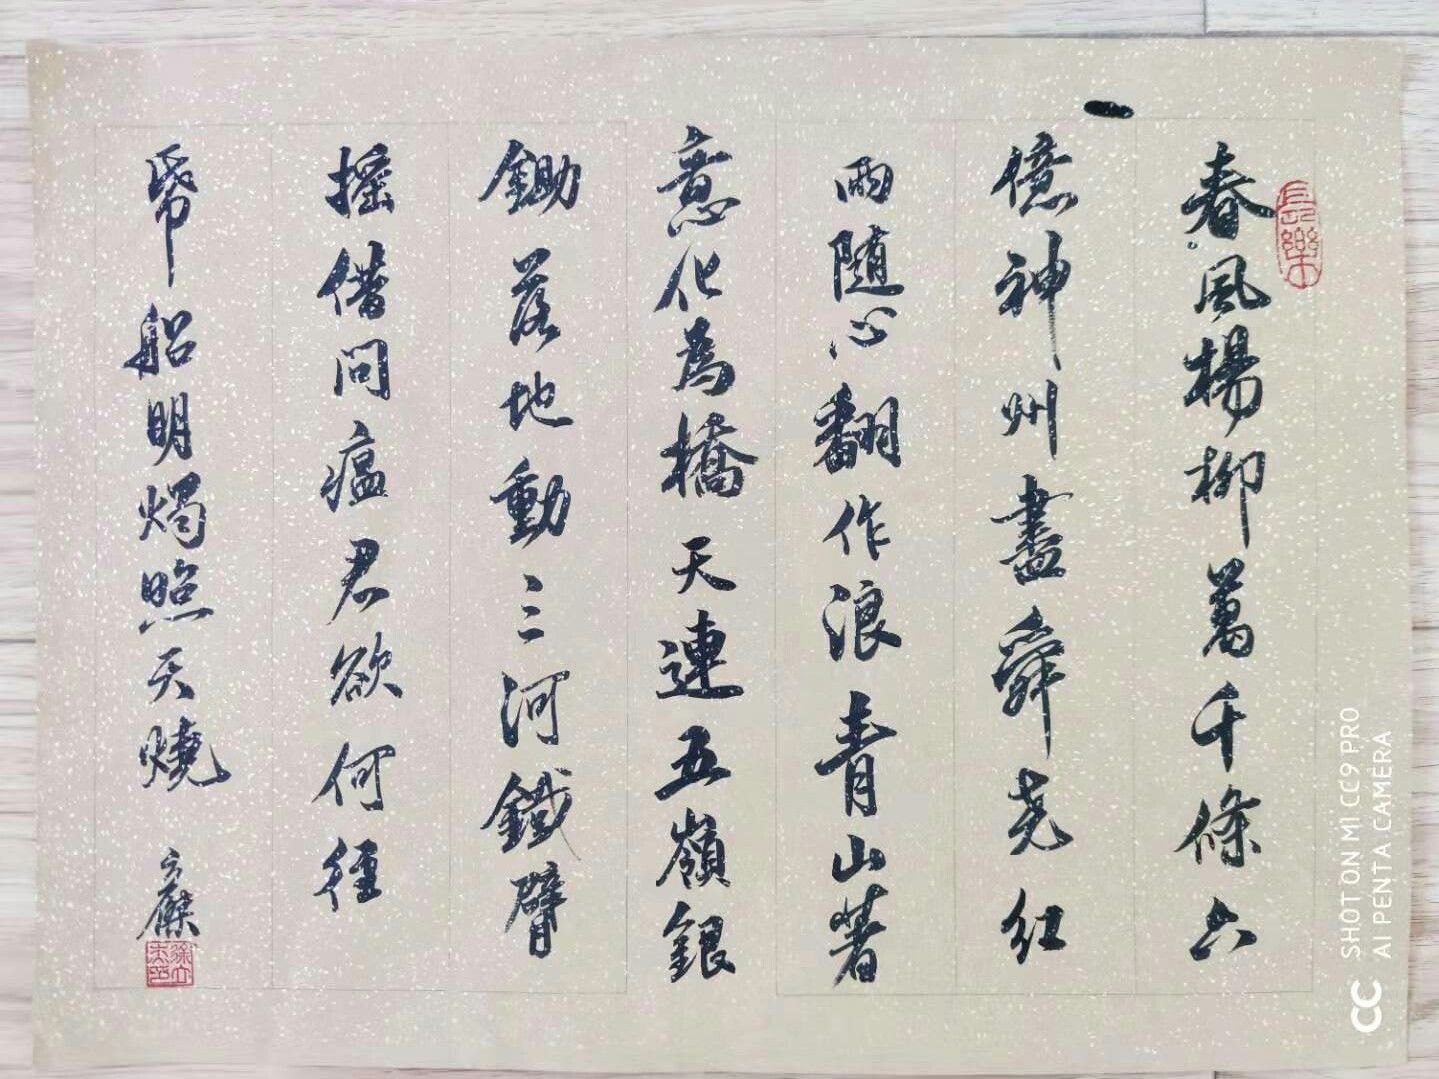 春風楊柳萬千條六
億神州盡舜堯紅
雨随心翻作浪青山著
意化為橋天連五嶺銀
鋤落地動三河鐵臂
摇借問瘟君欲何徑
帋船明燭照天燒
長樂
SHOT ON MI CC9 PRO
AI PENTA CAMERA